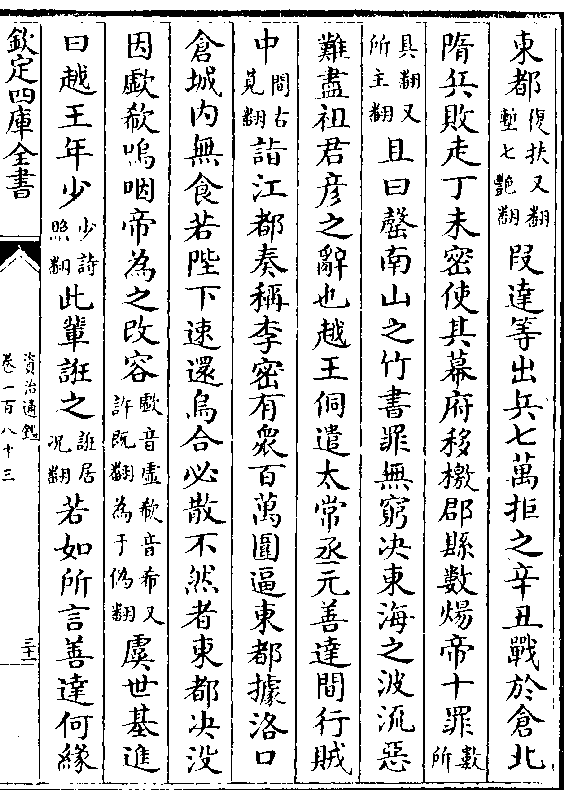 東都復扶又翻塹七艶翻段達等出兵七萬拒之辛丑戰於倉北
隋兵敗走丁未密使其幕府移檄郡縣數煬帝十罪數所
具翻又所主翻且曰罄南山之竹書罪無窮决東海之波流惡
難盡祖君彦之辭也越王侗遣太常丞元善達間行賊
中間古莧翻詣江都奏稱李密有衆百萬圍逼東都據洛口
倉城内無食若陛下速還烏合必散不然者東都决没
因歔欷嗚咽帝為之改容歔音虚欷音希又許既翻為于偽翻虞世基進
曰越王年少少詩照翻此輩誑之誑居况翻若如所言善達何緣
欽定四庫全書
資治通鑑
卷一百八十三
三十二